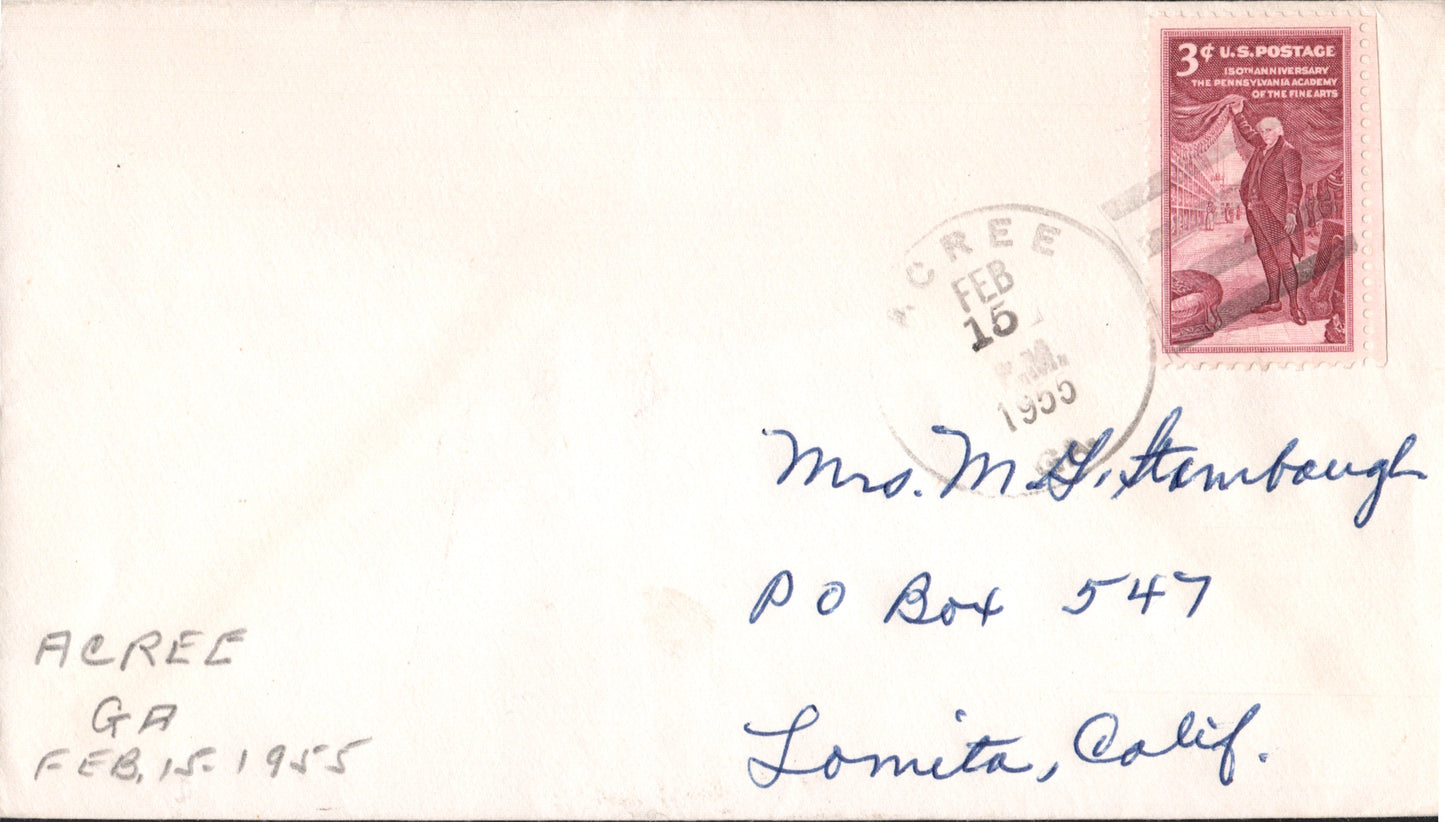 3¢ U.S. POSTAGE
150TH ANNIVERSARY
THE PENNSYLVANIA ACADEMY
OF THE FINE ARTS
ACREE
FEB
15
P.M.
1955
GA.
Mrs. M. G. Stambaugh
PO Box 547
Lomita, Calif.
ACREE
GA
FEB. 15. 1955